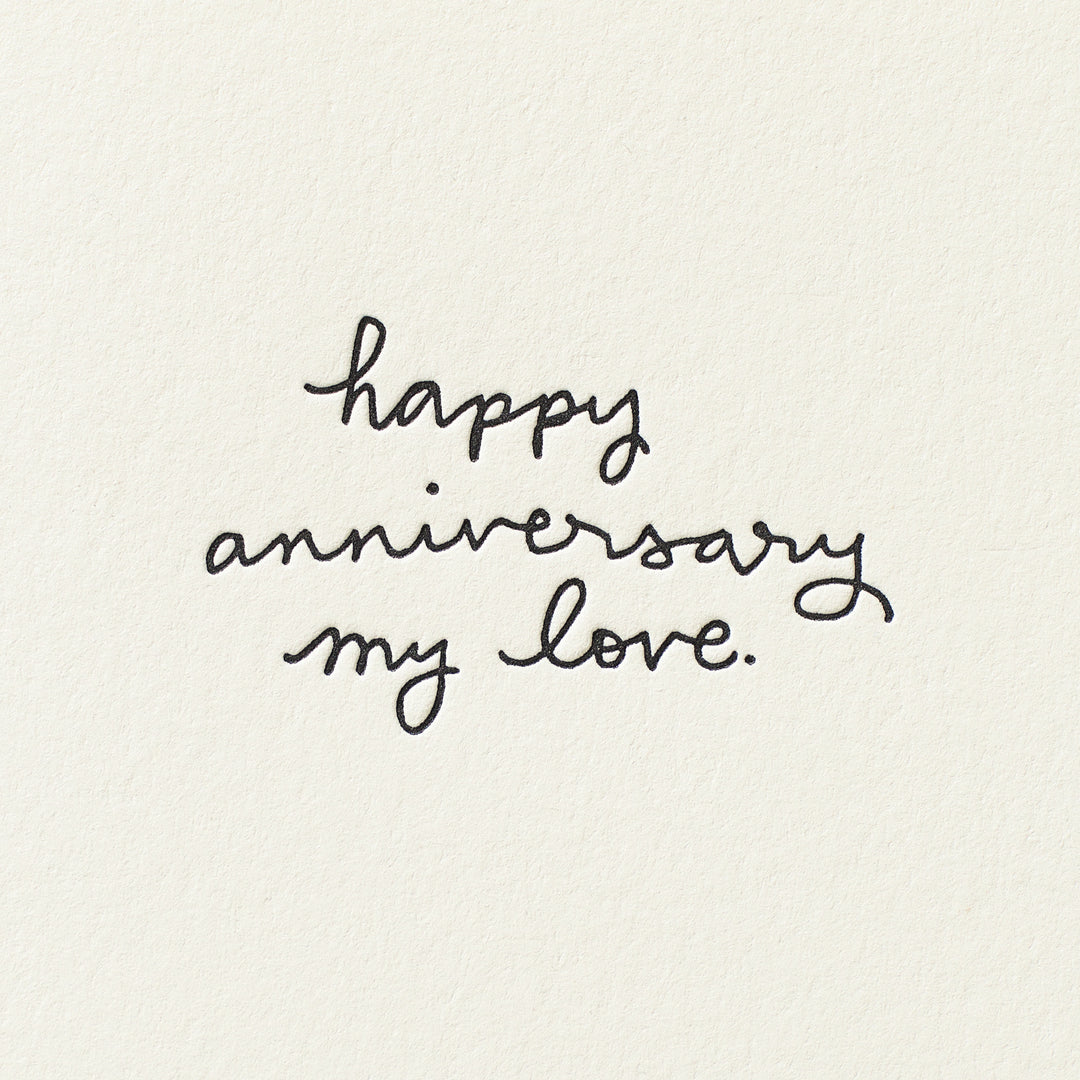 happy
anniversary
my love.